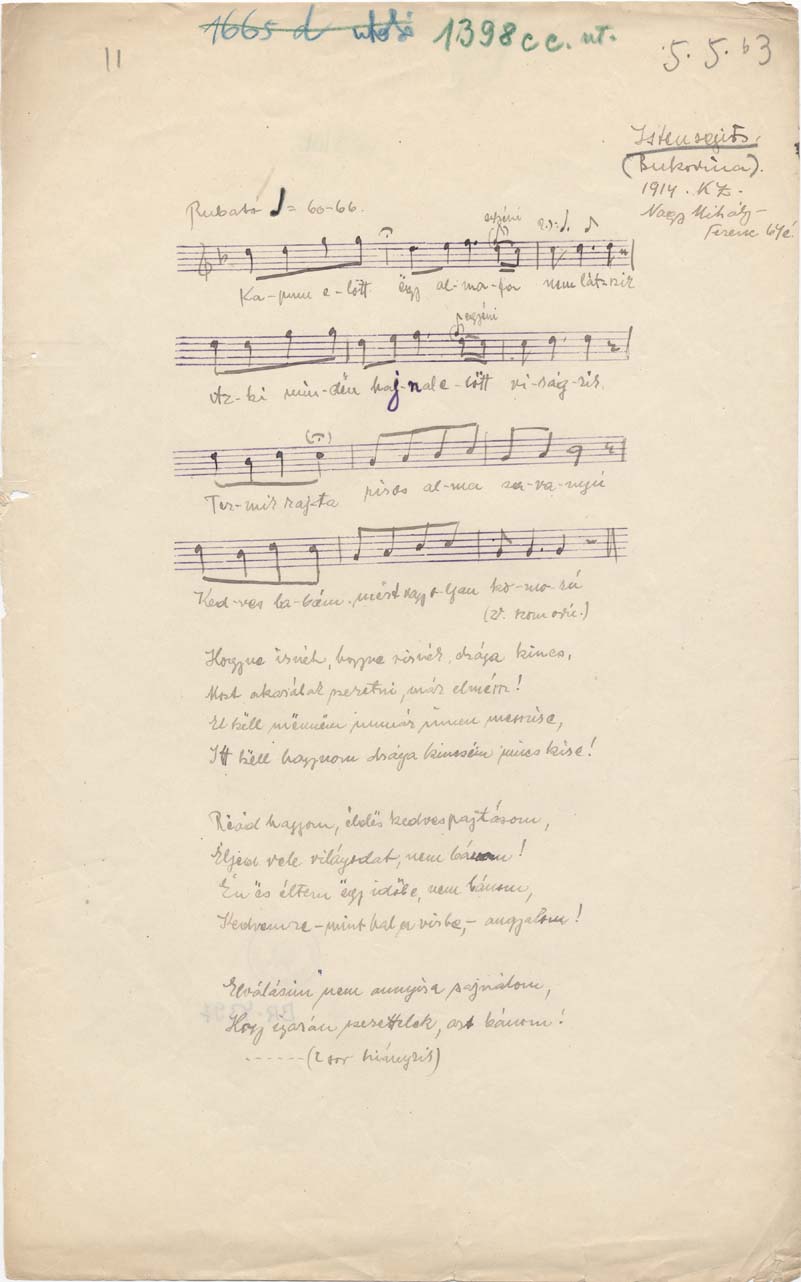 1665 d utolsó 1398 cc. ut.
11
5. 5. 63
Istensegits.
(Bukovina).
1914. KZ.
Nagy Mihály
Ferenc 6/é.
Rubato ♩= 60-66.
egyéni
Ka-pum e-lőtt ëgy al-ma-fa nem látszik
egyéni
Az-ki min-dën haj-nal e-lőtt vi-rág-zik.
Ter-mik rajta piros al-ma sa-va-nyú
Ked-ves ba-bám, mért vagy o-lyan ko-mo-rú
(v. szomorú.)
Hogyne írnék, hogyne rínék, drága kincs,
Most akarálak szeretni, már elmész!
El këll mënnëm immár innen messzire,
Itt këll hagynom drága kincsëm nincs kire!
Réád hagyom, éldës kedvespajtásom,
Éljed vele világodat, nem bánom!
Én ës éltem ëgy időbe, nem bánom,
Kedvemre - mint hal a vizbe, - angyalom!
Elválásim nem annyira sajnálom,
Hogy igazán szerettelek, azt bánom!
- - - - - - (2 sor hiányzik)